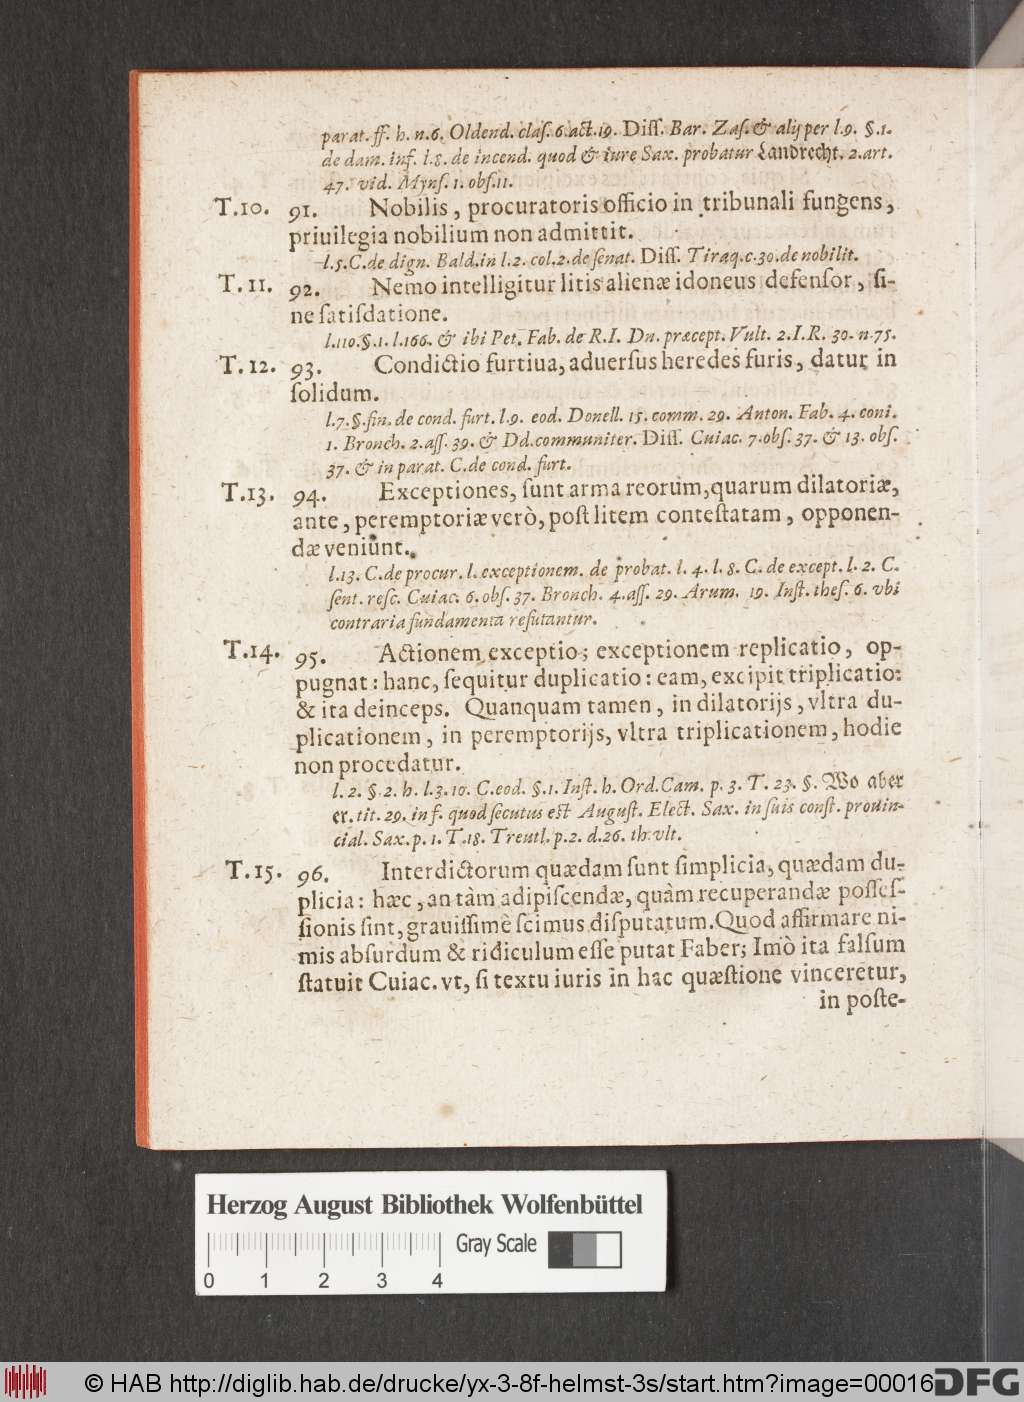 parat. ff. h. n.6. Oldend. claſ. 6. act. 19. Diſſ. Bar. Zaſ. & alij per l.9. §.1.
de dam. inf. l.8. de incend. quod & iure Sax. probatur Landrecht. 2. art.
47. vid. Mynſ. 1. obſ. 11.
T.10. 91. Nobilis, procuratoris officio in tribunali fungens,
priuilegia nobilium non admittit.
l.5. C. de dign. Bald. in l.2. col.2. de ſenat. Diſſ. Tiraq. c.30. de nobilit.
T.11. 92. Nemo intelligitur litis alienæ idoneus defenſor, ſi-
ne ſatiſdatione.
l.110. §.1. l.166. & ibi Pet. Fab. de R.I. Dn. præcept. Vult. 2. I.R. 30. n.75.
T.12. 93. Condictio furtiua, aduerſus heredes furis, datur in
ſolidum.
l.7. §. fin. de cond. furt. l.9. eod. Donell. 15. comm. 29. Anton. Fab. 4. coni.
1. Bronch. 2. aſſ. 39. & Dd. communiter. Diſſ. Cuiac. 7. obſ. 37. & 13. obſ.
37. & in parat. C. de cond. furt.
T.13. 94. Exceptiones, ſunt arma reorum, quarum dilatoriæ,
ante, peremptoriæ verò, poſt litem conteſtatam, opponen-
dæ veniunt.
l.13. C. de procur. l. exceptionem. de probat. l. 4. l. 8. C. de except. l. 2. C.
ſent. reſc. Cuiac. 6. obſ. 37. Bronch. 4. aſſ. 29. Arum. 19. Inſt. theſ. 6. vbi
contraria fundamenta refutantur.
T.14. 95. Actionem exceptio; exceptionem replicatio, op-
pugnat: hanc, ſequitur duplicatio: eam, excipit triplicatio:
& ita deinceps. Quanquam tamen, in dilatorijs, vltra du-
plicationem, in peremptorijs, vltra triplicationem, hodie
non procedatur.
l. 2. §. 2. h. l. 3. 10. C. eod. §. 1. Inſt. h. Ord. Cam. p. 3. T. 23. §. Wo aber
er. tit. 29. in f. quod ſecutus eſt Auguſt. Elect. Sax. in ſuis conſt. prouin-
cial. Sax. p. 1. T. 18. Treutl. p.2. d.26. th. vlt.
T.15. 96. Interdictorum quædam ſunt ſimplicia, quædam du-
plicia: hæc, an tàm adipiſcendæ, quàm recuperandæ poſſeſ-
ſionis ſint, grauiſſimè ſcimus diſputatum. Quod affirmare ni-
mis abſurdum & ridiculum eſſe putat Faber; Imò ita falſum
ſtatuit Cuiac. vt, ſi textu iuris in hac quæſtione vinceretur,
in poſte-
Herzog August Bibliothek Wolfenbüttel
Gray Scale
0 1 2 3 4
© HAB http://diglib.hab.de/drucke/yx-3-8f-helmst-3s/start.htm?image=00016
DFG